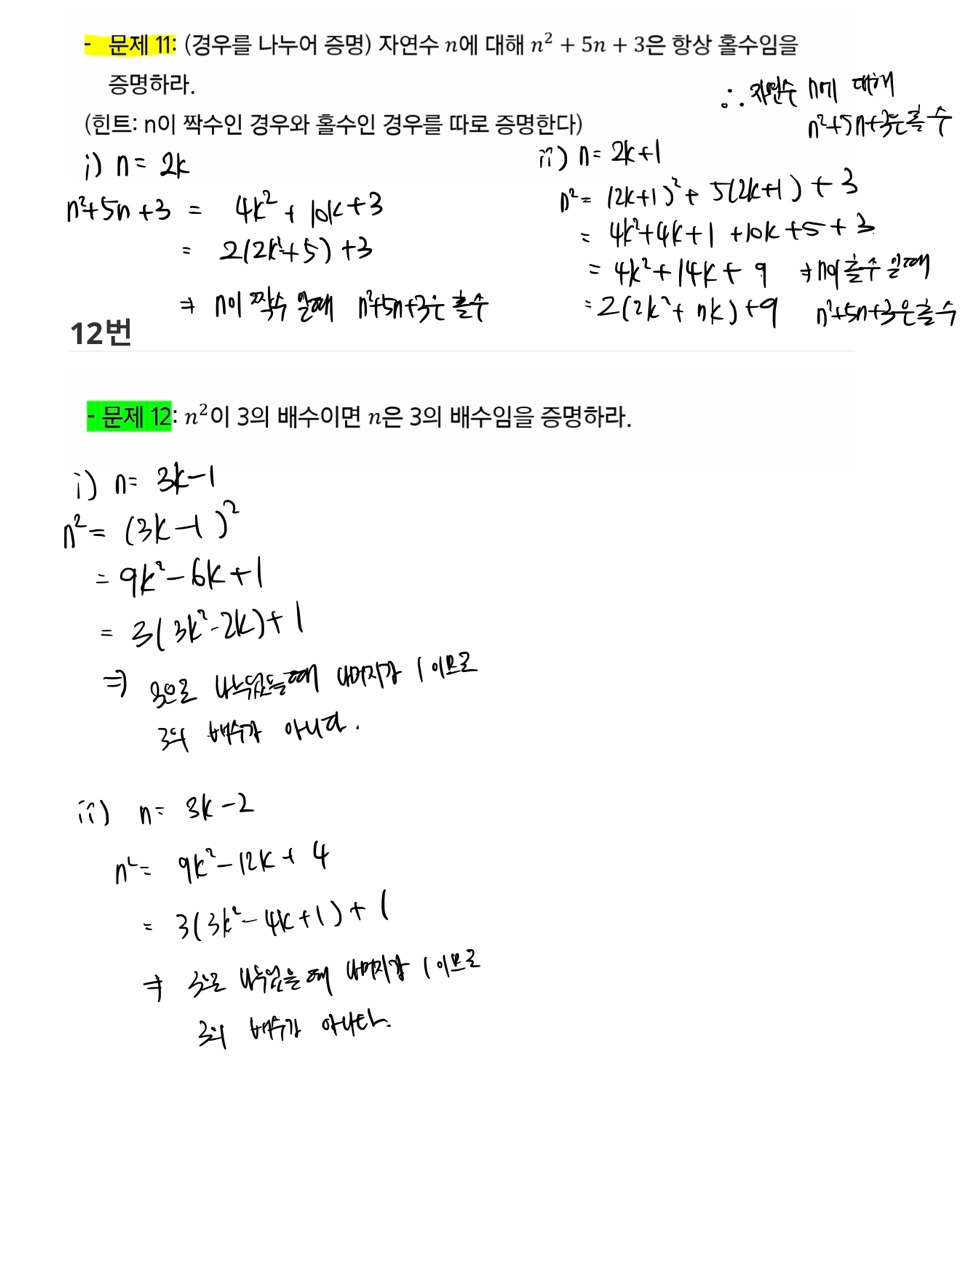 - 문제 11: (경우를 나누어 증명) 자연수 n에 대해 n² + 5n + 3은 항상 홀수임을
증명하라.
(힌트: n이 짝수인 경우와 홀수인 경우를 따로 증명한다)
∴ 자연수 n에 대해
n²+5n+3은 홀수
i) n = 2k
n²+5n+3 = 4k² + 10k+3
= 2(2k²+5)+3
⇒ n이 짝수 일때 n²+5n+3은 홀수
ii) n = 2k+1
n² = (2k+1)² + 5(2k+1) + 3
= 4k²+4k+1 +10k+5+3
= 4k²+14k+9 ⇒ n이 홀수 일때
= 2(2k²+nk)+9 n²+5n+3은 홀수
12번
- 문제 12: n²이 3의 배수이면 n은 3의 배수임을 증명하라.
i) n= 3k-1
n² = (3k-1)²
= 9k²-6k+1
= 3(3k²-2k)+1
⇒ 3으로 나누었을때 나머지가 1이므로
3의 배수가 아니다.
ii) n= 3k-2
n² = 9k²-12k+4
= 3(3k²-4k+1)+1
⇒ 3으로 나누었을때 나머지가 1이므로
3의 배수가 아니다.